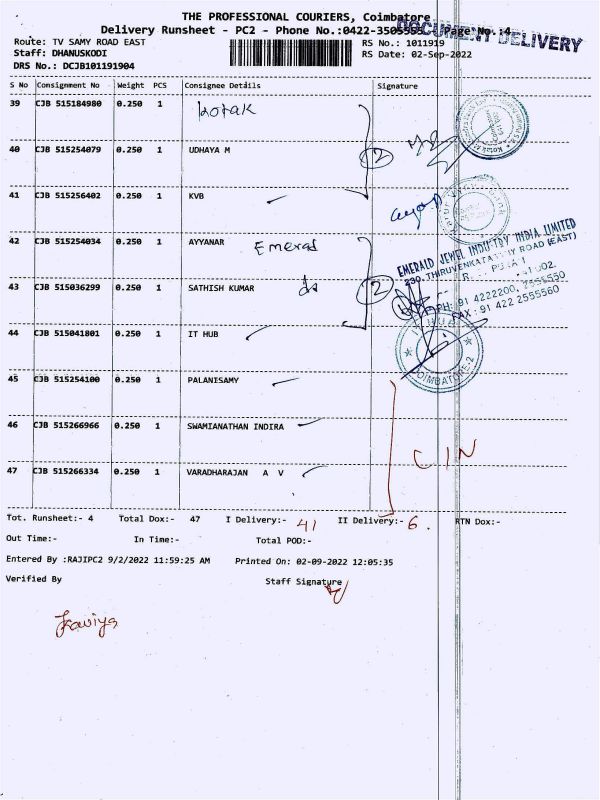 THE PROFESSIONAL COURIERS, Coimbatore
Delivery Runsheet - PC2 - Phone No.:0422-3505555 Page No.:4
DOCUMENT DELIVERY
Route: TV SAMY ROAD EAST RS No.: 1011919
Staff: DHANUSKODI RS Date: 02-Sep-2022
DRS No.: DCJB101191904
S No Consignment No Weight PCS Consignee Details Signature
39 CJB 515184980 0.250 1 kotak
40 CJB 515254079 0.250 1 UDHAYA M 2
41 CJB 515256402 0.250 1 KVB
42 CJB 515254034 0.250 1 AYYANAR Emerad
EMERALD JEWEL INDUSTRY INDIA LIMITED
230, THIRUVENKATASAMY ROAD (EAST)
43 CJB 515036299 0.250 1 SATHISH KUMAR do 2
PH: 91 4222200, 2555550
FAX : 91 422 2555560
44 CJB 515041801 0.250 1 IT HUB
IT HUB
COIMBATORE-2
45 CJB 515254100 0.250 1 PALANISAMY
46 CJB 515266966 0.250 1 SWAMIANATHAN INDIRA
CIN
47 CJB 515266334 0.250 1 VARADHARAJAN A V
Tot. Runsheet:- 4 Total Dox:- 47 I Delivery:- 41 II Delivery:- 6. RTN Dox:-
Out Time:- In Time:- Total POD:-
Entered By :RAJIPC2 9/2/2022 11:59:25 AM Printed On: 02-09-2022 12:05:35
Verified By Staff Signature
Kaviya